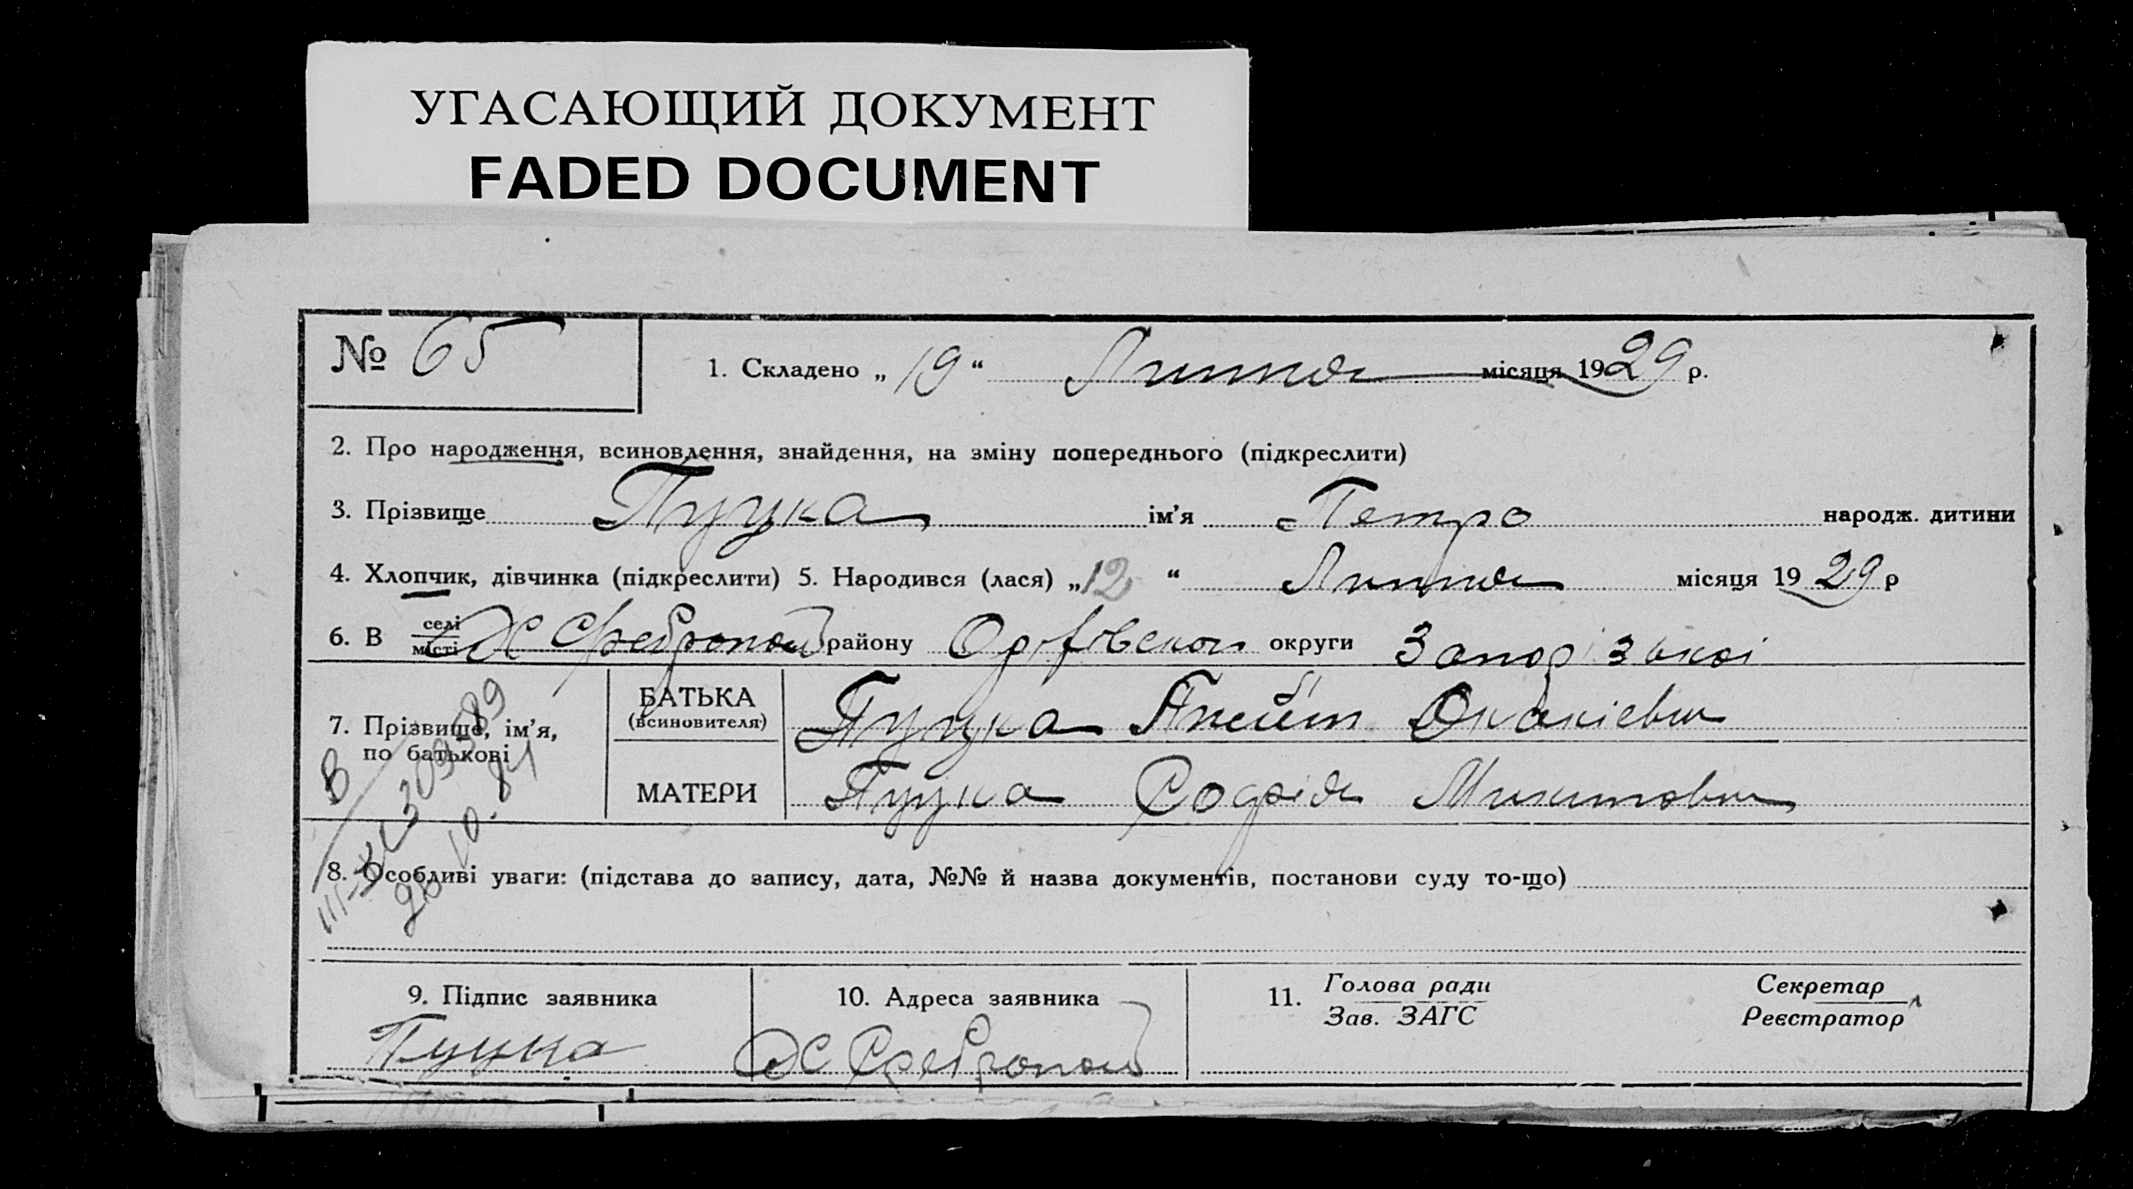 УГАСАЮЩИЙ ДОКУМЕНТ
FADED DOCUMENT
№ 65
1. Складено „ 19 “ Липня місяця 1929 р.
2. Про народження, всиновлення, знайдення, на зміну попереднього (підкреслити)
3. Прізвище Пуцка ім'я Петро народж. дитини
4. Хлопчик, дівчинка (підкреслити) 5. Народився (лася) „ 12 “ Липня місяця 1929 р
6. В селі місті району округи Запорізької
7. Прізвище, ім'я, по батькові
БАТЬКА (всиновителя) Пуцка
МАТЕРИ Пуцка Софія
8. Особливі уваги: (підстава до запису, дата, №№ й назва документів, постанови суду то-що)
9. Підпис заявника
10. Адреса заявника
11. Голова ради
Зав. ЗАГС
Секретар
Реєстратор
Пуцка